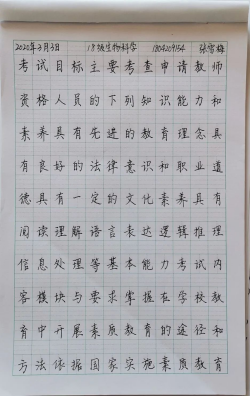 2020年3月3日 18级生物科学 1804209154 张雪梅
考试目标主要考查申请教师
资格人员的下列知识能力和
素养具有先进的教育理念具
有良好的法律意识和职业道
德具有一定的文化素养具有
阅读理解语言表达逻辑推理
信息处理等基本能力考试内
容模块与要求掌握在学校教
育中开展素质教育的途径和
方法依据国家实施素质教育